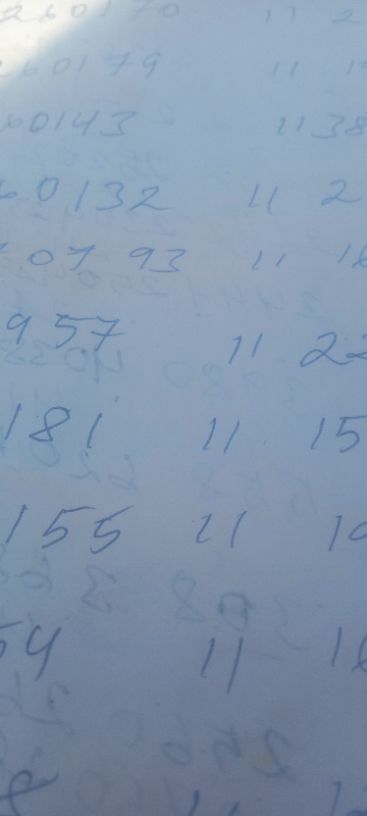 260170 11 2
60179 11 1
60143 11 38
60132 11 2
0793 11 1
957 11 22
181 11 15
155 11 1
54 11 1
8 11 1